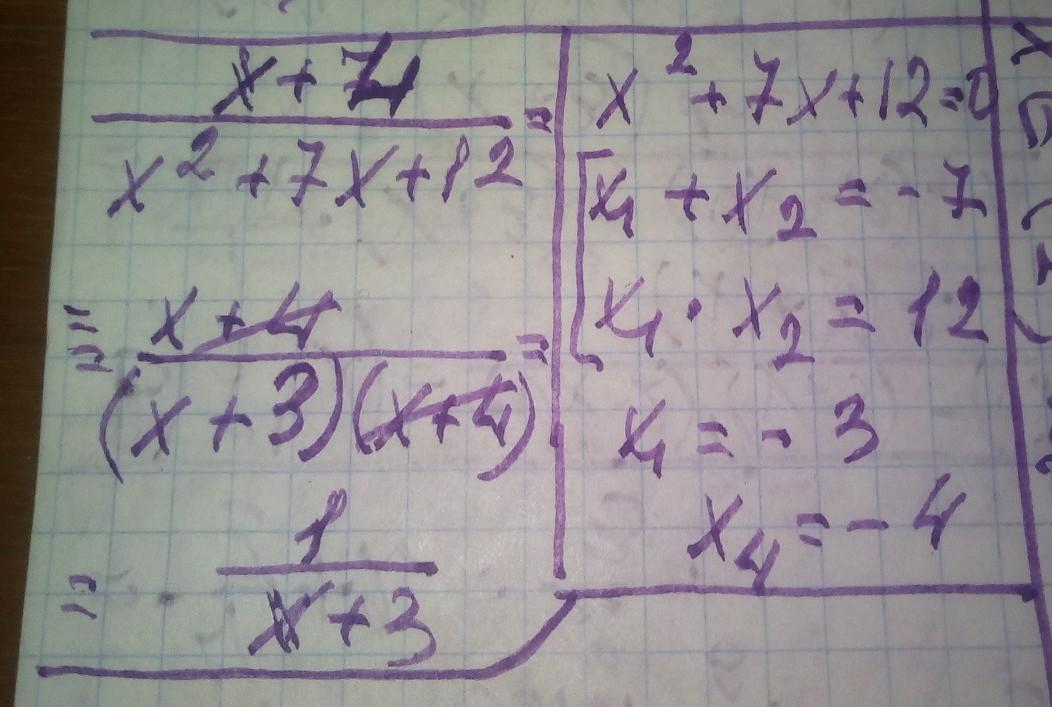 x+4
x²+7x+12 =
= x+4
(x+3)(x+4) =
= 1
x+3
x²+7x+12=0
x₁ + x₂ = -7
x₁ · x₂ = 12
x₁ = - 3
x₄ = - 4